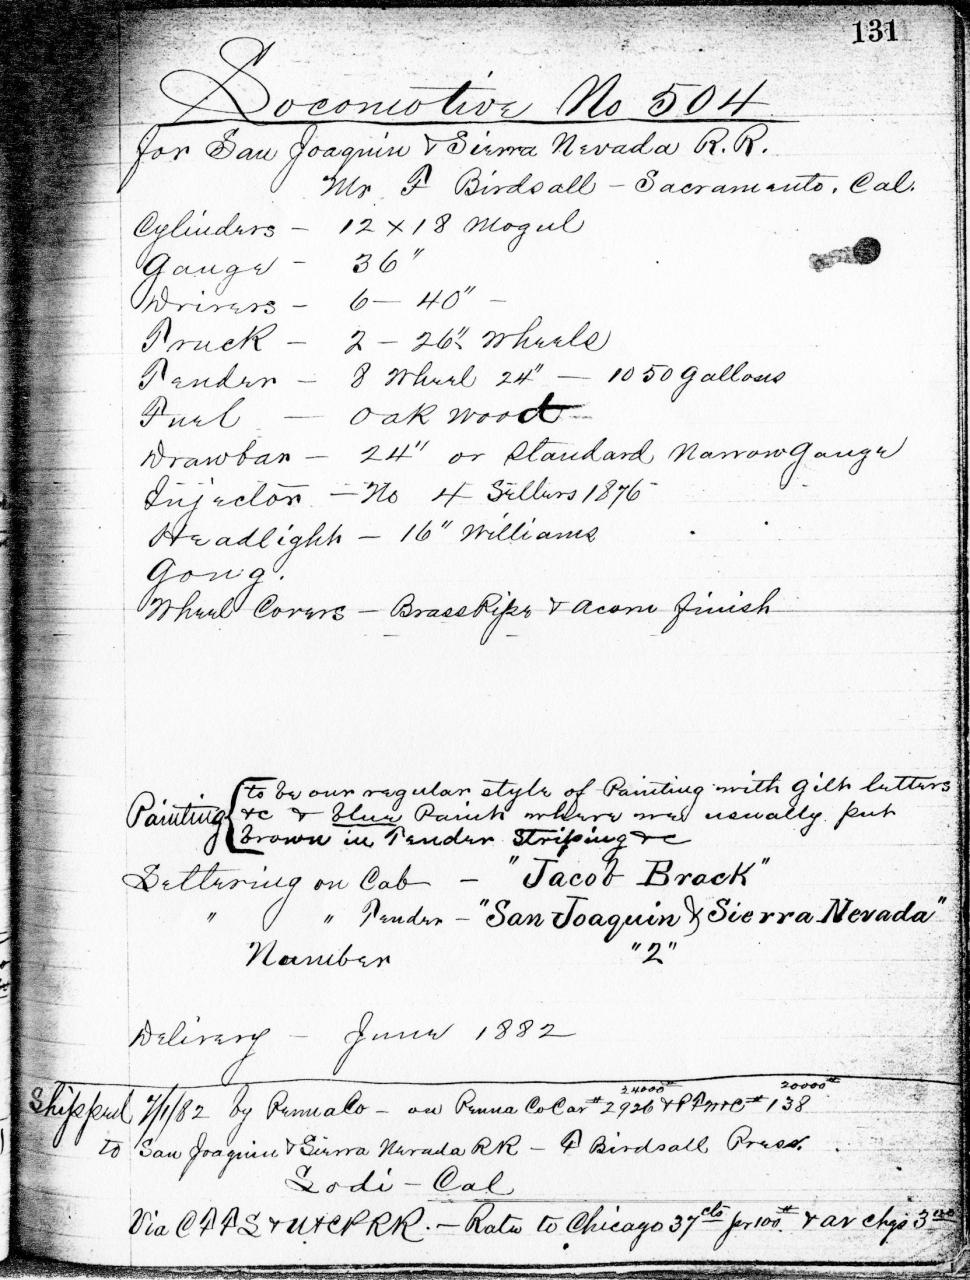 131
Locomotive No 504
for San Joaquin & Sierra Nevada R.R.
Mr F Birdsall – Sacramento, Cal.
Cylinders – 12 x 18 Mogul
Gauge – 36"
Drivers – 6 – 40" –
Truck – 2 – 26" Wheels
Tender – 8 Wheel 24" – 1050 Gallons
Fuel – Oak Wood
Drawbar – 24" or Standard Narrow Gauge
Injector – No 4 Sellers 1876
Headlight – 16" Williams
Gong.
Wheel Covers – Brass Pipe & Acorn finish
Painting { to be our regular style of Painting with Gilt letters
&c & blue Paint where we usually put
brown in Tender Striping &c
Lettering on Cab – "Jacob Brack"
" " Tender – "San Joaquin & Sierra Nevada"
Number "2"
Delivery – June 1882
24000# 20000#
Shipped 7/1/82 by Penna Co – on Penna Co Car # 2926 & # 138
to San Joaquin & Sierra Nevada RR – F Birdsall Prest.
Lodi – Cal
Via & U & CP RR. – Rate to Chicago 37 cts per 100# & ar chgs 3